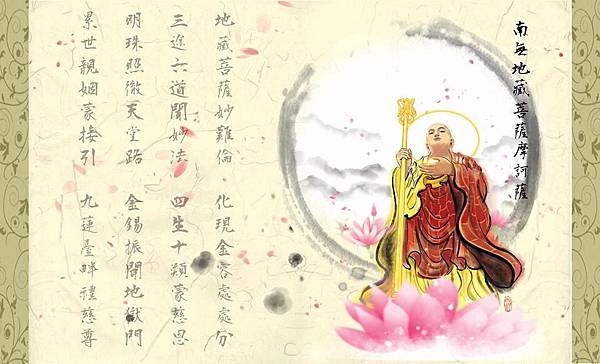 南無地藏菩薩摩訶薩
地藏菩薩妙難倫 化現金容處處分
三途六道聞妙法 四生十類蒙慈恩
明珠照徹天堂路 金錫振開地獄門
累世親姻蒙接引 九蓮臺畔禮慈尊